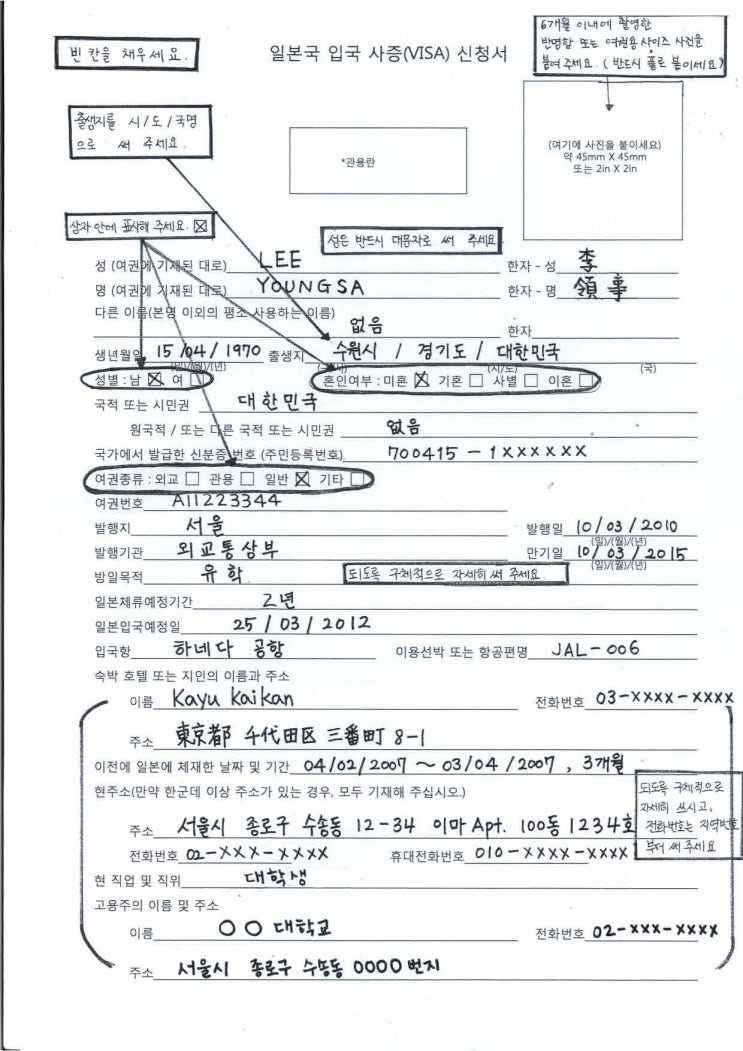 빈 칸을 채우세요.
일본국 입국 사증(VISA) 신청서
6개월 이내에 촬영한
반명함 또는 여권용 사이즈 사진을
붙여 주세요. (반드시 풀로 붙이세요)
출생지를 시/도/국명
으로 써 주세요.
*관용란
(여기에 사진을 붙이세요)
약 45mm X 45mm
또는 2in X 2in
상자 안에 표시해 주세요. ☒
성은 반드시 대문자로 써 주세요
성 (여권에 기재된 대로) LEE 한자 - 성 李
명 (여권에 기재된 대로) YOUNGSA 한자 - 명 領事
다른 이름(본명 이외의 평소 사용하는 이름)
없음 한자
생년월일 15/04/1970 출생지 수원시 / 경기도 / 대한민국
(일)/(월)/(년) (시/도) (국)
성별 : 남 ☒ 여 □ 혼인여부 : 미혼 ☒ 기혼 □ 사별 □ 이혼 □
국적 또는 시민권 대한민국
원국적 / 또는 다른 국적 또는 시민권 없음
국가에서 발급한 신분증 번호 (주민등록번호) 700415 - 1XXXXXX
여권종류 : 외교 □ 관용 □ 일반 ☒ 기타 □
여권번호 A11223344
발행지 서울 발행일 10/03/2010
(일)/(월)/(년)
발행기관 외교통상부 만기일 10/03/2015
(일)/(월)/(년)
방일목적 유학 되도록 구체적으로 자세히 써 주세요.
일본체류예정기간 2년
일본입국예정일 25/03/2012
입국항 하네다 공항 이용선박 또는 항공편명 JAL-006
숙박 호텔 또는 지인의 이름과 주소
이름 Kayu Kaikan 전화번호 03-XXXX-XXXX
주소 東京都 千代田区 三番町 8-1
이전에 일본에 체재한 날짜 및 기간 04/02/2007 ~ 03/04/2007, 3개월
현주소(만약 한군데 이상 주소가 있는 경우, 모두 기재해 주십시오.)
되도록 구체적으로
자세히 쓰시고,
전화번호는 지역번호
부터 써 주세요
주소 서울시 종로구 수송동 12-34 이마 Apt. 100동 1234호
전화번호 02-XXX-XXXX 휴대전화번호 010-XXXX-XXXX
현 직업 및 직위 대학생
고용주의 이름 및 주소
이름 ○○ 대학교 전화번호 02-XXX-XXXX
주소 서울시 종로구 수송동 0000번지